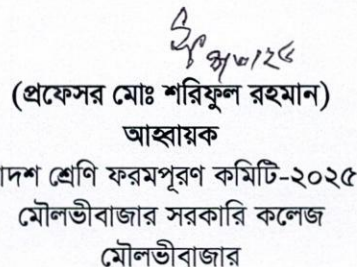 (প্রফেসর মোঃ শরিফুল রহমান)
আহ্বায়ক
দশ শ্রেণি ফরমপূরণ কমিটি-২০২৫
মৌলভীবাজার সরকারি কলেজ
মৌলভীবাজার